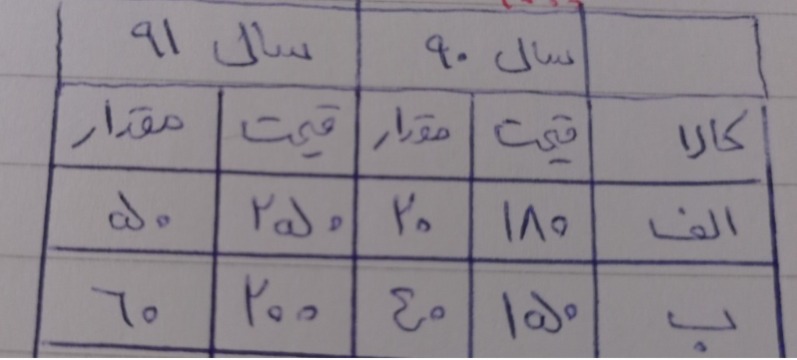 سال ۹۰ سال ۹۱
کالا قیمت مقدار قیمت مقدار
الف ۱۸۰ ۲۰ ۲۵۰ ۵۰
ب ۱۵۰ ٤۰ ۲۰۰ ٦۰